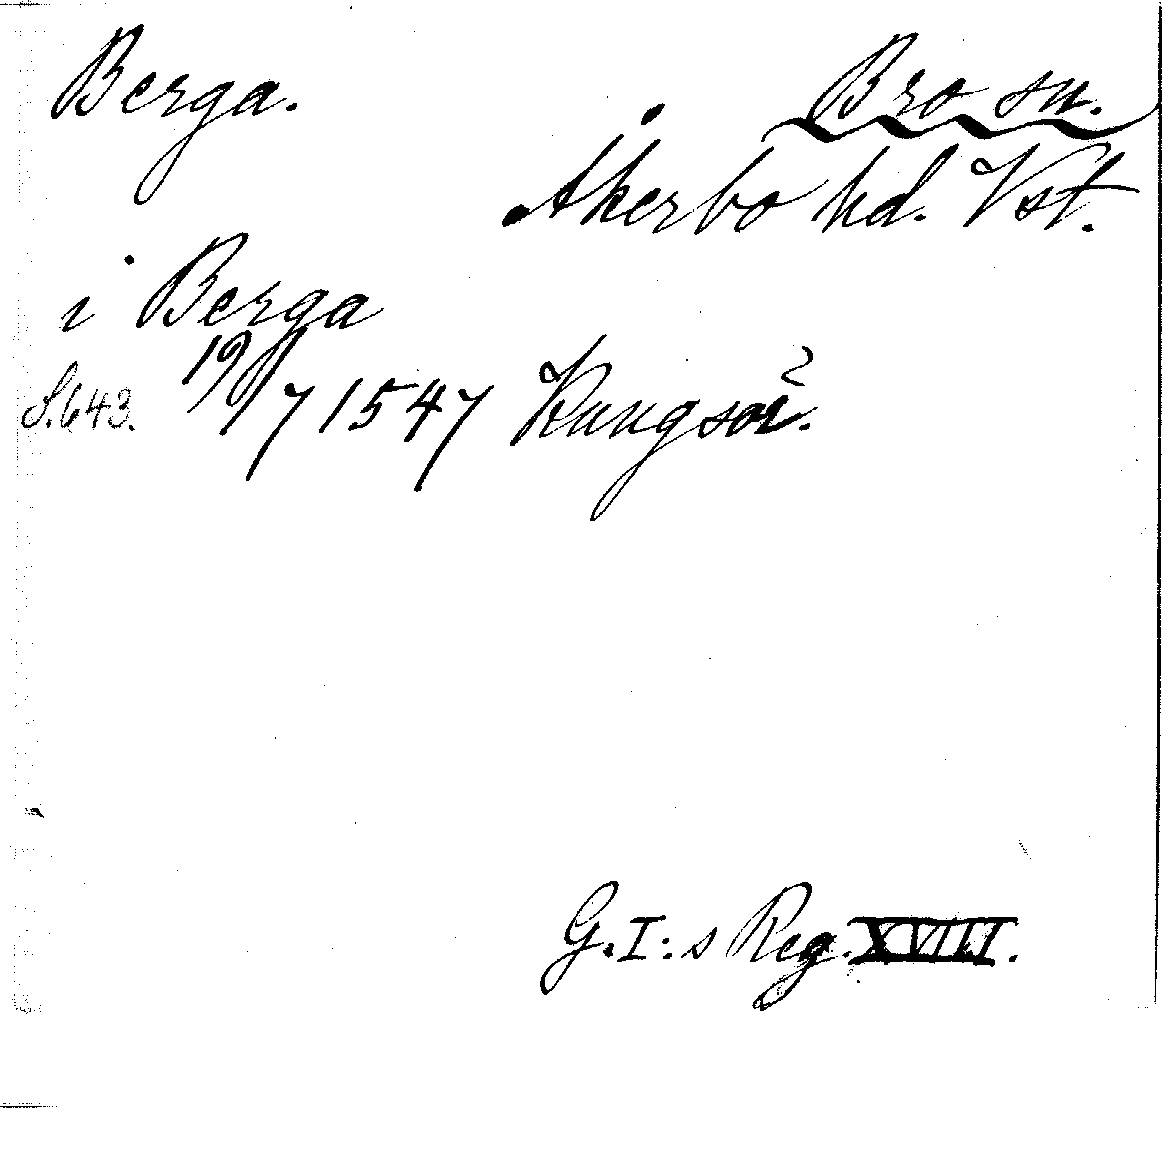 Berga. Bro sn.
Åkerbo hd. Vst.
i Berga
S. 643. 19/7 1547 Kungsör.
G. I:s Reg. XVIII.